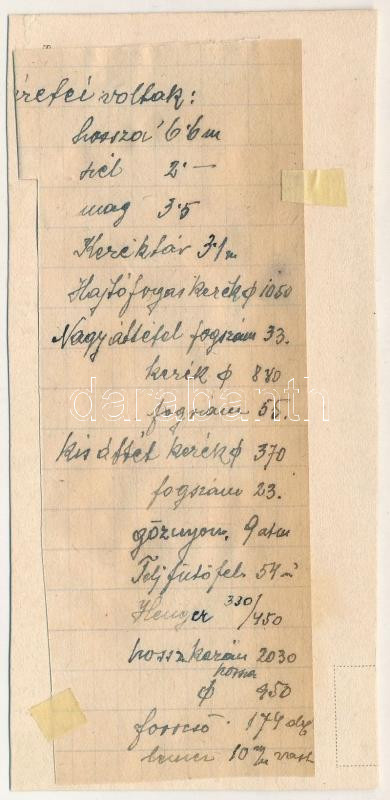 méretei voltak:
hossza 6.6m
szél 2.—
mag 3.5
Keréktáv 3.1m
Hajtófogaskerék ϕ 1050
Nagy áttétel fogszám 33.
kerék ϕ 880
fogszám 55.
darabanth
Kis áttét kerék ϕ 370
fogszám 23.
gőznyom. 9 atm
Telj fűtőfel. 54 m²
Henger 330/450
hossz kazán 2030
hossza
ϕ 950
forrcső 174 db
10 m/m vast